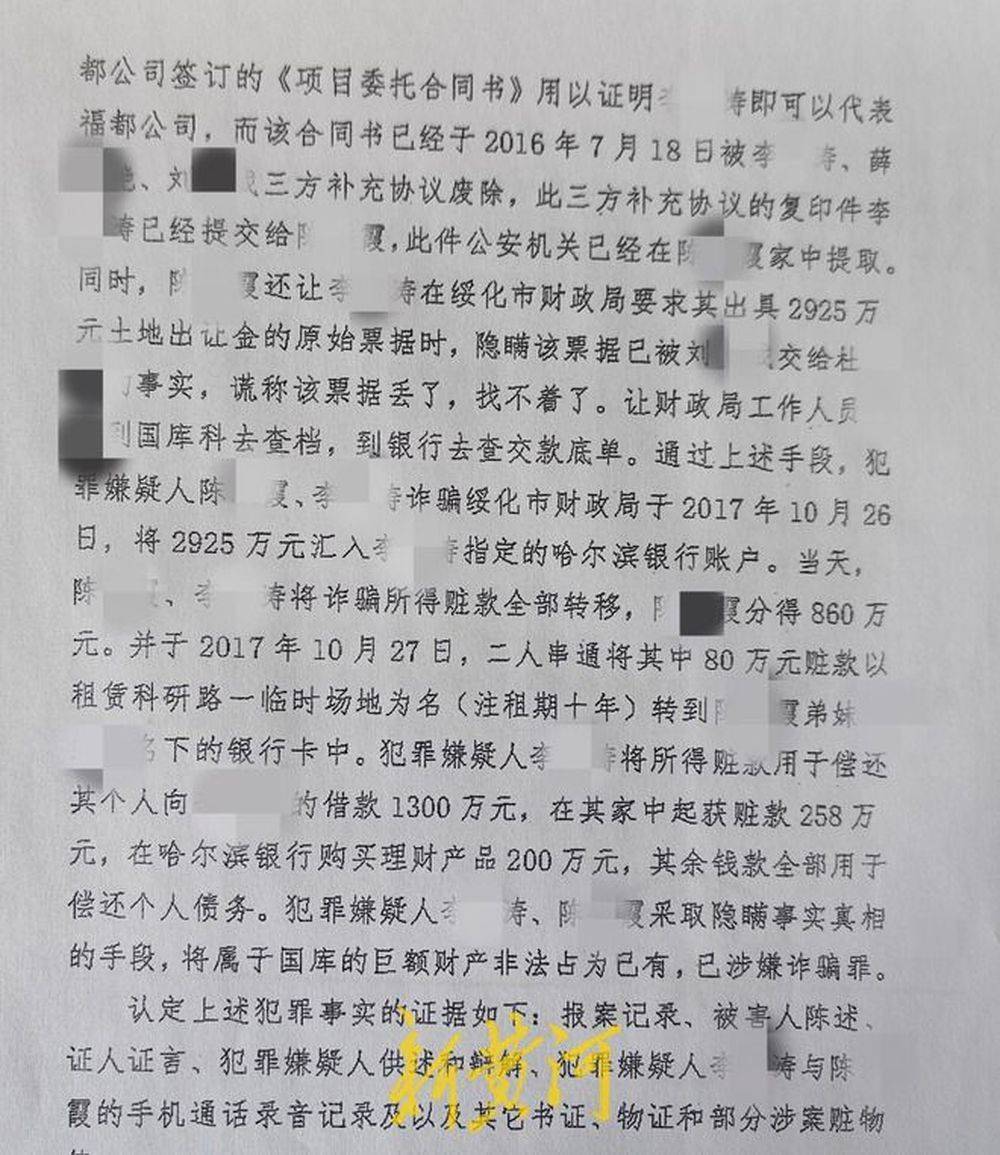 都公司签订的《项目委托合同书》用以证明 涛即可以代表
福都公司，而该合同书已经于2016年7月18日被李 涛、薛
艳、刘 三方补充协议废除，此三方补充协议的复印件李
涛已经提交给陈 霞，此件公安机关已经在陈 霞家中提取。
同时，陈 霞还让李 涛在绥化市财政局要求其出具2925万
元土地出让金的原始票据时，隐瞒该票据已被刘 交给杜
事实，谎称该票据丢了，找不着了。让财政局工作人员
到国库科去查档，到银行去查交款底单。通过上述手段，犯
罪嫌疑人陈 霞、李 涛诈骗绥化市财政局于2017年10月26
日，将2925万元汇入李 涛指定的哈尔滨银行账户。当天，
陈 霞、李 涛将诈骗所得赃款全部转移，陈 霞分得860万
元。并于2017年10月27日，二人串通将其中80万元赃款以
租赁科研路一临时场地为名（注租期十年）转到陈 霞弟妹
名下的银行卡中。犯罪嫌疑人李 涛将所得赃款用于偿还
其个人向 的借款1300万元，在其家中起获赃款258万
元，在哈尔滨银行购买理财产品200万元，其余钱款全部用于
偿还个人债务。犯罪嫌疑人李 涛、陈 霞采取隐瞒事实真相
的手段，将属于国库的巨额财产非法占为已有，已涉嫌诈骗罪。
认定上述犯罪事实的证据如下：报案记录、被害人陈述、
证人证言、犯罪嫌疑人供述和辩解、犯罪嫌疑人李 涛与陈
霞的手机通话录音记录及以及其它书证、物证和部分涉案赃物
新黄河